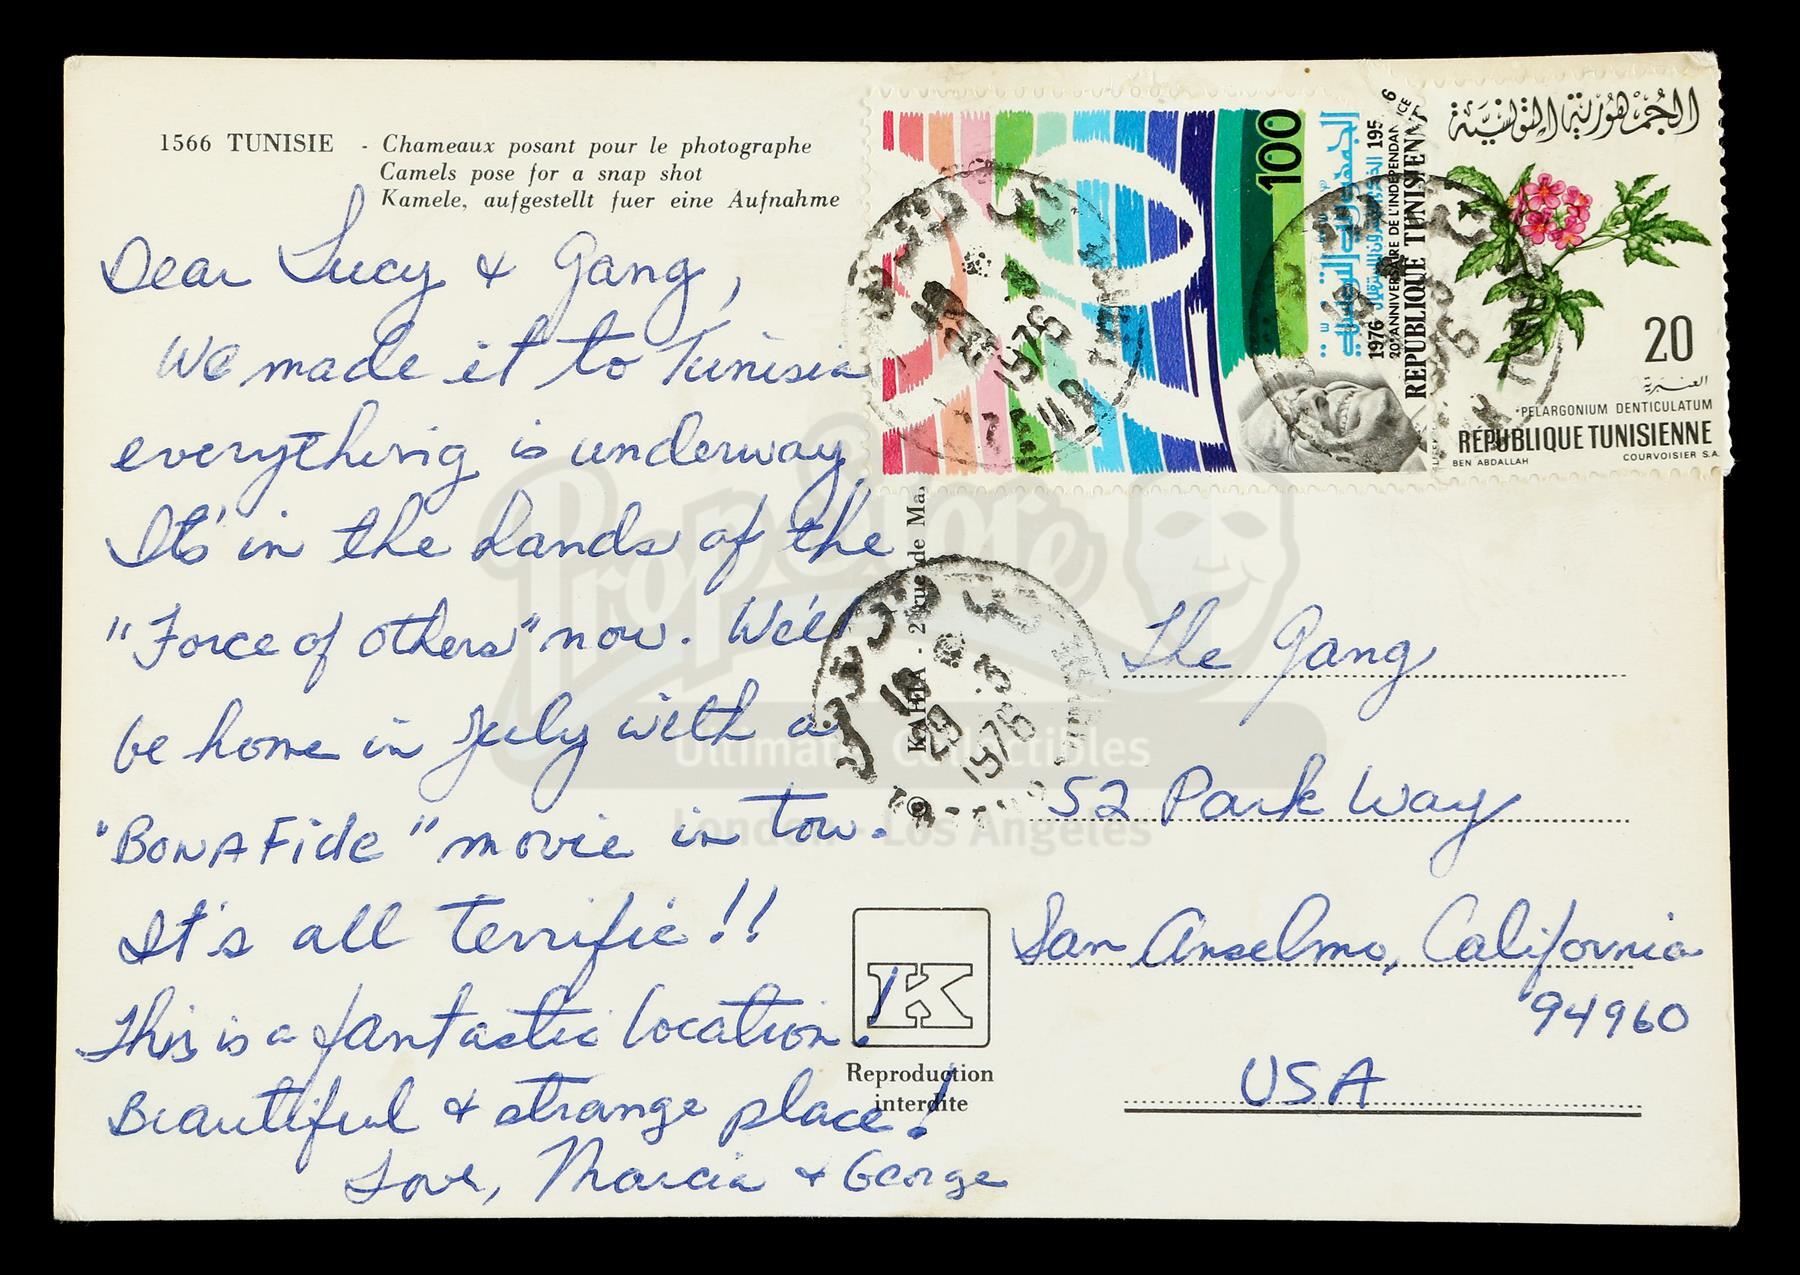 1566 TUNISIE - Chameaux posant pour le photographe
Camels pose for a snap shot
Kamele, aufgestellt fuer eine Aufnahme
Dear Lucy & Gang,
We made it to Tunisia
everything is underway
It's in the hands of the
"Force of others" now. We'll
be home in July with a
"BONA Fide" movie in tow.
It's all terrific!!
This is a fantastic location!
Beautiful & strange place!
Love, Marcia & George
100
الجمهورية التونسية
1976
20e ANNIVERSAIRE DE L'INDEPENDANCE
REPUBLIQUE TUNISIENNE
الجمهورية التونسية
20
PELARGONIUM DENTICULATUM
RÉPUBLIQUE TUNISIENNE
BEN ABDALLAH COURVOISIER S.A.
1976
29 - 3
1976
KAHIA - rue de
The Gang
52 Park Way
San Anselmo, California
94960
USA
K
Reproduction
interdite
Prop Store
Ultimate Collectibles
London - Los Angeles